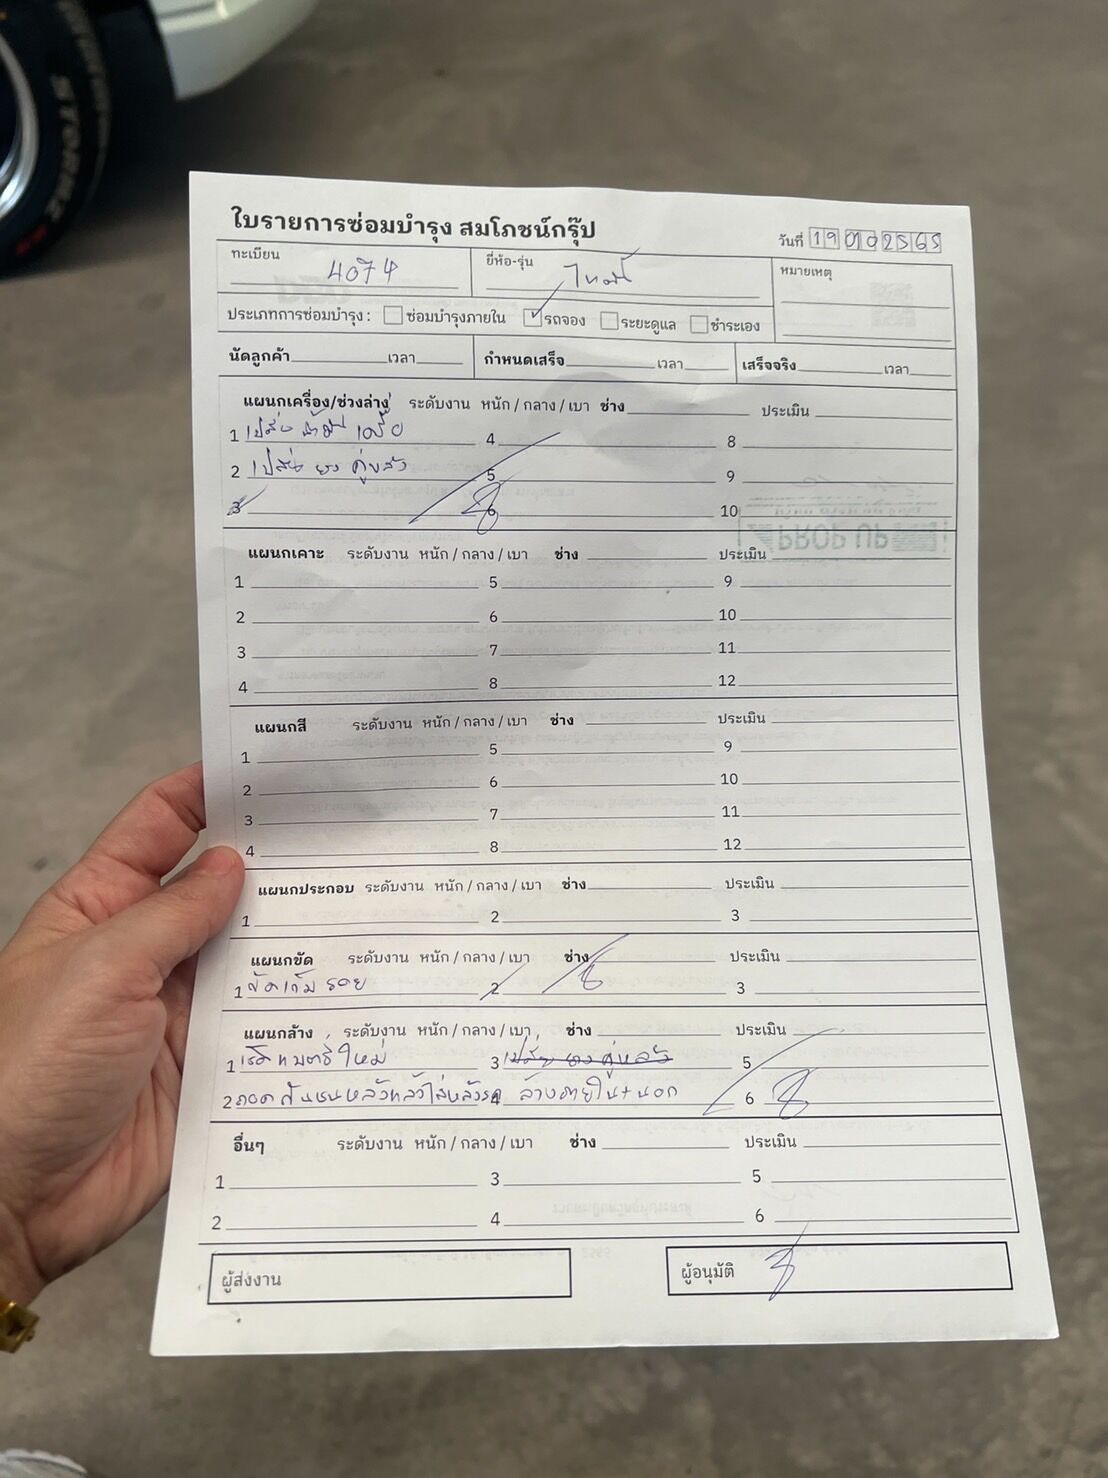 ใบรายการซ่อมบำรุง สมโภชน์กรุ๊ป
วันที่ 19 09 2565
ทะเบียน 4074 ยี่ห้อ-รุ่น หมายเหตุ
ประเภทการซ่อมบำรุง : ซ่อมบำรุงภายใน รถจอง ระยะดูแล ชำระเอง
นัดลูกค้า เวลา กำหนดเสร็จ เวลา เสร็จจริง เวลา
แผนกเครื่อง/ช่วงล่าง ระดับงาน หนัก / กลาง / เบา ช่าง ประเมิน
1 4 8
2 เปลี่ยน ยาง คู่หลัง 5 9
3 6 10
PROP UP
แผนกเคาะ ระดับงาน หนัก / กลาง / เบา ช่าง ประเมิน
1 5 9
2 6 10
3 7 11
4 8 12
แผนกสี ระดับงาน หนัก / กลาง / เบา ช่าง ประเมิน
1 5 9
2 6 10
3 7 11
4 8 12
แผนกประกอบ ระดับงาน หนัก / กลาง / เบา ช่าง ประเมิน
1 2 3
แผนกขัด ระดับงาน หนัก / กลาง / เบา ช่าง ประเมิน
1 ขัดเก็บ รอย 2 3
แผนกล้าง ระดับงาน หนัก / กลาง / เบา ช่าง ประเมิน
1 ใหม่ 3 เปลี่ยน ยาง คู่หลัง 5
2 ถอดกันชนหลังแล้วใส่หลังรถ 4 ล้างภายใน+นอก 6
อื่นๆ ระดับงาน หนัก / กลาง / เบา ช่าง ประเมิน
1 3 5
2 4 6
ผู้ส่งงาน ผู้อนุมัติ